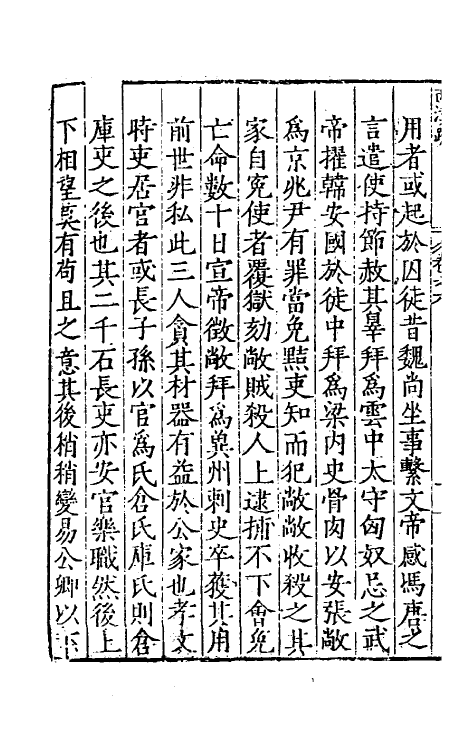 用者或起於囚徒昔魏尚坐事繫文帝感馮唐之
言遣使持節赦其辠拜爲雲中太守匈奴忌之武
帝擢韓安國於徒中拜爲梁内史骨肉以安張敞
爲京兆尹有罪當免黠吏知而犯敞敞收殺之其
家自寃使者覆獄劾敞賊殺人上逮捕不下會免
亡命數十日宣帝徵敞拜爲兾州刺史卒獲其用
前世非私此三人貪其材器有益於公家也孝文
時吏居官者或長子孫以官爲氏倉氏庫氏則倉
庫吏之後也其二千石長吏亦安官樂職然後上
下相望莫有茍且之意其後稍稍變易公卿以下